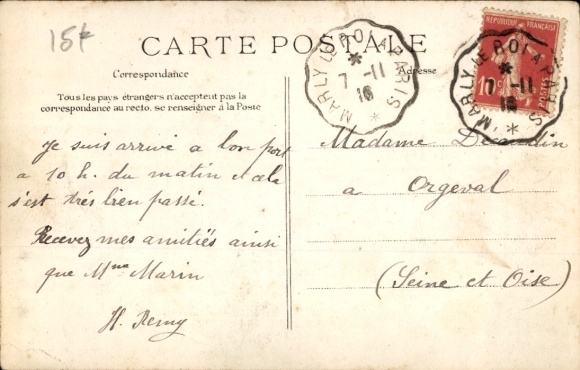 15f
CARTE POSTALE
Correspondance
Adresse
Tous les pays étrangers n'acceptent pas la
correspondance au recto. se renseigner à la Poste
MARLY LE ROI A PARIS
7 -11
16
REPUBLIQUE FRANÇAISE
10
POSTES
MARLY LE ROI A PARIS
7 -11
16
Je suis arrivé a bon port
a 10 h. du matin et cela
s'est très bien passé.
Recevez mes amitiés ainsi
que Mme Marin
H. Remy
Madame
a Orgeval
(Seine et Oise)